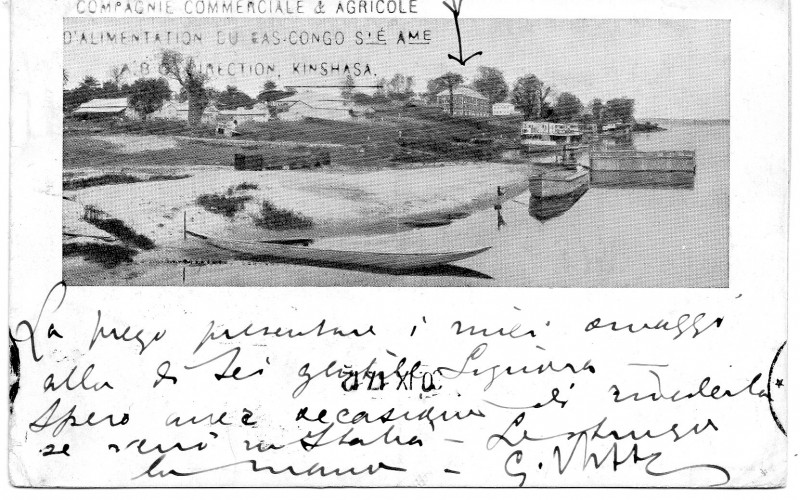 COMPAGNIE COMMERCIALE & AGRICOLE
D'ALIMENTATION DU BAS-CONGO STÉ AME
DIRECTION, KINSHASA.
La prego presentare i miei omaggi
alla di Lei gentile Signora —
Spero aver occasione di rivederla
se verrò in Italia — Le stringo
la mano — G.